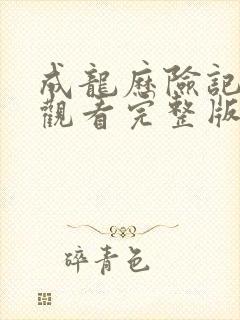 成龍歷險記
觀看完整版
碎青色